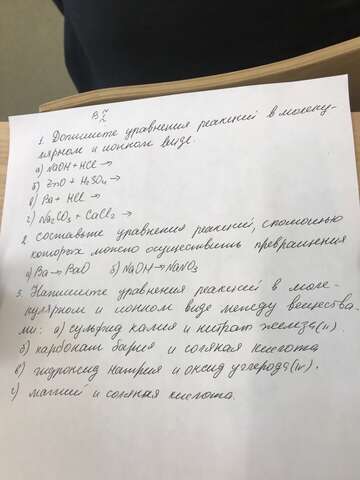 В 2
1. Допишите уравнения реакций в молеку-
лярном и ионном виде.
а) NaOH + HCl →
б) ZnO + H₂SO₄ →
в) Ba + HCl →
г) Na₂CO₃ + CaCl₂ →
2. Составьте уравнения реакций, с помощью
которых можно осуществить превращения
а) Ba → BaO б) NaOH → NaNO₃
3. Напишите уравнения реакций в моле-
кулярном и ионном виде между вещества-
ми: а) сульфид калия и нитрат железа (II).
б) карбонат бария и соляная кислота
в) гидроксид натрия и оксид углерода (IV).
г) магний и соляная кислота.